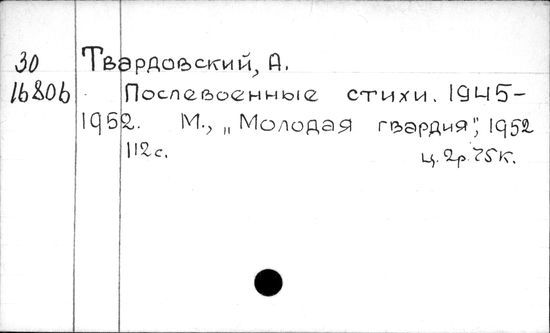 30
16806
Твардовский, А.
Послевоенные стихи. 1945-
1952. М., „Молодая гвардия", 1952
112с. ц. 2р. 75к.